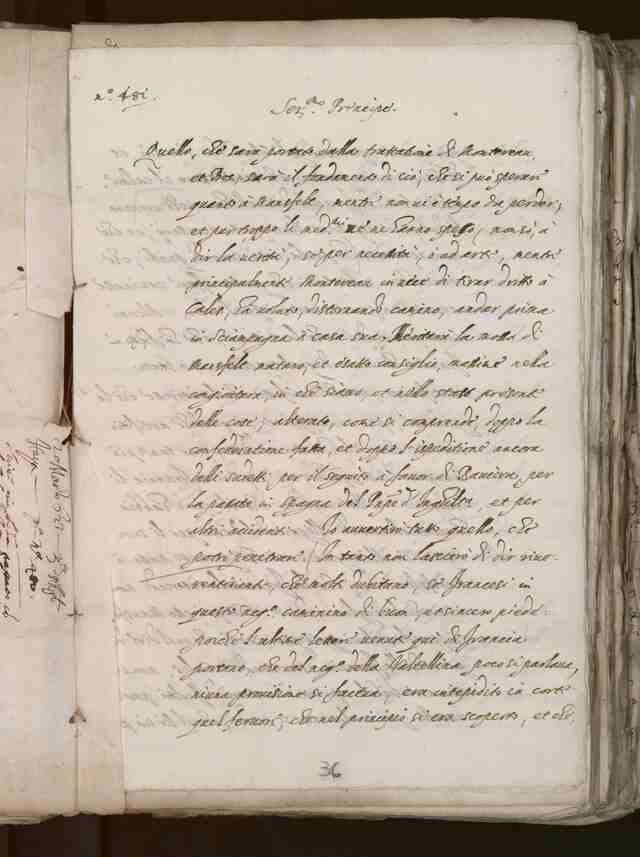 n.° 481.
Ser.mo Principe.
Quello, che sarà portato dalla trattatione di Montereau,
et Bia, sarà il fondamento di ciò, che si può sperare
quanto à Mansfelt, mentre non vi è tempo da perder;
et pur troppo li med.mi ne ne hanno speso; non sò, à
dir la verità, se per necessità, ò ad arte, mentre
principalmente Montereau in vece di tirar dritto à
Cales, ha voluto, distornando camino, andar prima
in Sciampagna à casa sua. Meritava la mossa di
Mansfelt maturo, et esatto consiglio, massime nella
congiontura, in che siamo, et nello stato presente
delle cose; alterato, come si comprende, doppo la
confederatione fatta, et doppo l'espeditione ancora
delli sudetti per il seguito à favor di Baviera, per
la passata in Spagna del Pnpe d'Inghilt.a, et per
altri accidenti. Io avvertirò tutto quello, che
potrò penetrare. In tanto non lascierò di dir rive-
rentemente, che molti dubitano, se Francesi in
questo neg.o caminino di buon, et sincero piede
poiche l'ultime lettere venute qui di Francia
portano, che del neg.o della Valtellina poco si parlava,
niuna provisione si faceva, era intepidito in corte
quel fervore, che nel principio si era scoperto, et che,
36